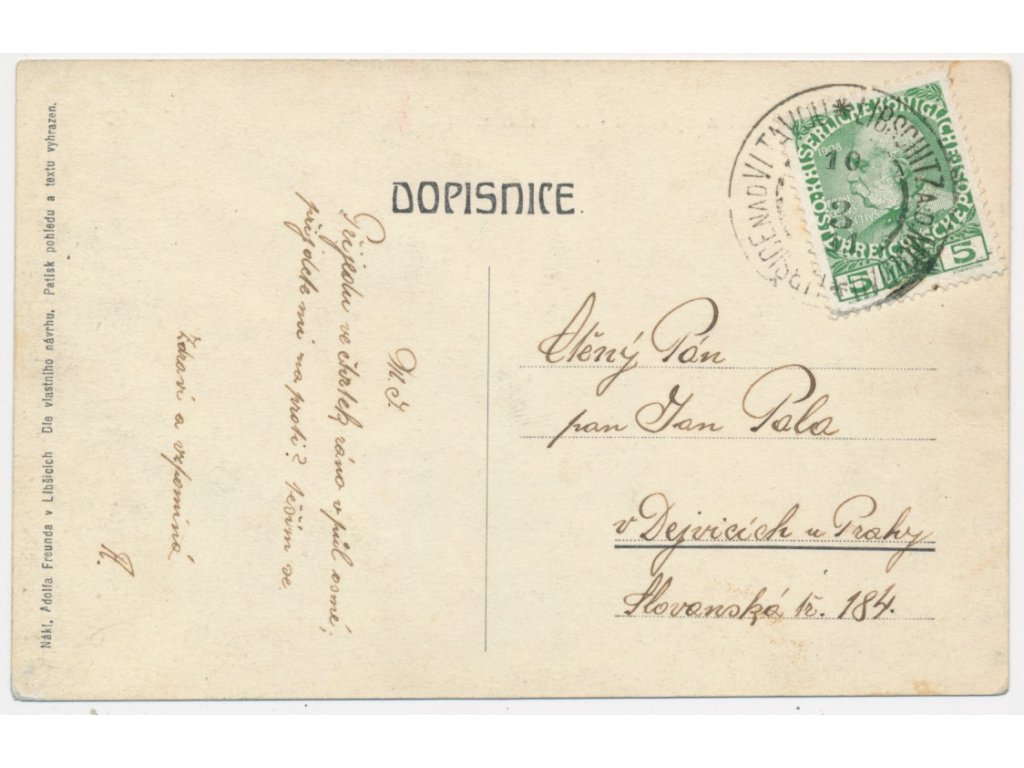 Nákl. Adolfa Freunda v Libšicích Dle vlastního návrhu. Patisk pohledu a textu vyhrazen.
DOPISNICE
M. J.
Přijedu ve čtvrtek ráno v půl osmé,
přijdete mi na proti? Těším se
Zdraví a vzpomíná
A.
LIBŠICE NAD VLTAVOU * LIBSCHITZ A.D. MOLDAU *
10
KAISERLICHE KÖNIGLICHE ÖSTERREICHISCHE
5 5
Ctěný Pán
pan Jan Pala
v Dejvicích u Prahy
Slovanská tř. 184.